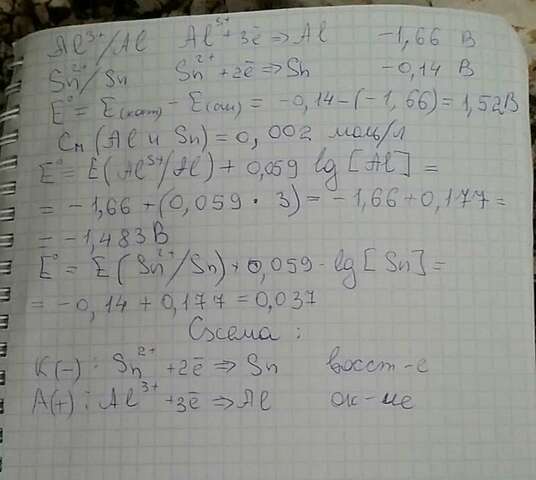 Al³⁺/Al Al³⁺+3ē ⇒ Al -1,66 В
Sn²⁺/Sn Sn²⁺+2ē ⇒ Sn -0,14 В
E° = E(кат) - E(ан) = -0,14-(-1,66)=1,52В
Cм (Al и Sn) = 0,002 моль/л
E° = E(Al³⁺/Al) + 0,059 lg [Al] =
= -1,66 + (0,059 · 3) = -1,66+0,177 =
= -1,483 В
E° = E (Sn²⁺/Sn) + 0,059 · lg [Sn] =
= -0,14 + 0,177 = 0,037
Схема :
К(-) : Sn²⁺ +2ē ⇒ Sn восст-е
А(+) : Al³⁺ +3ē ⇒ Al ок-ие